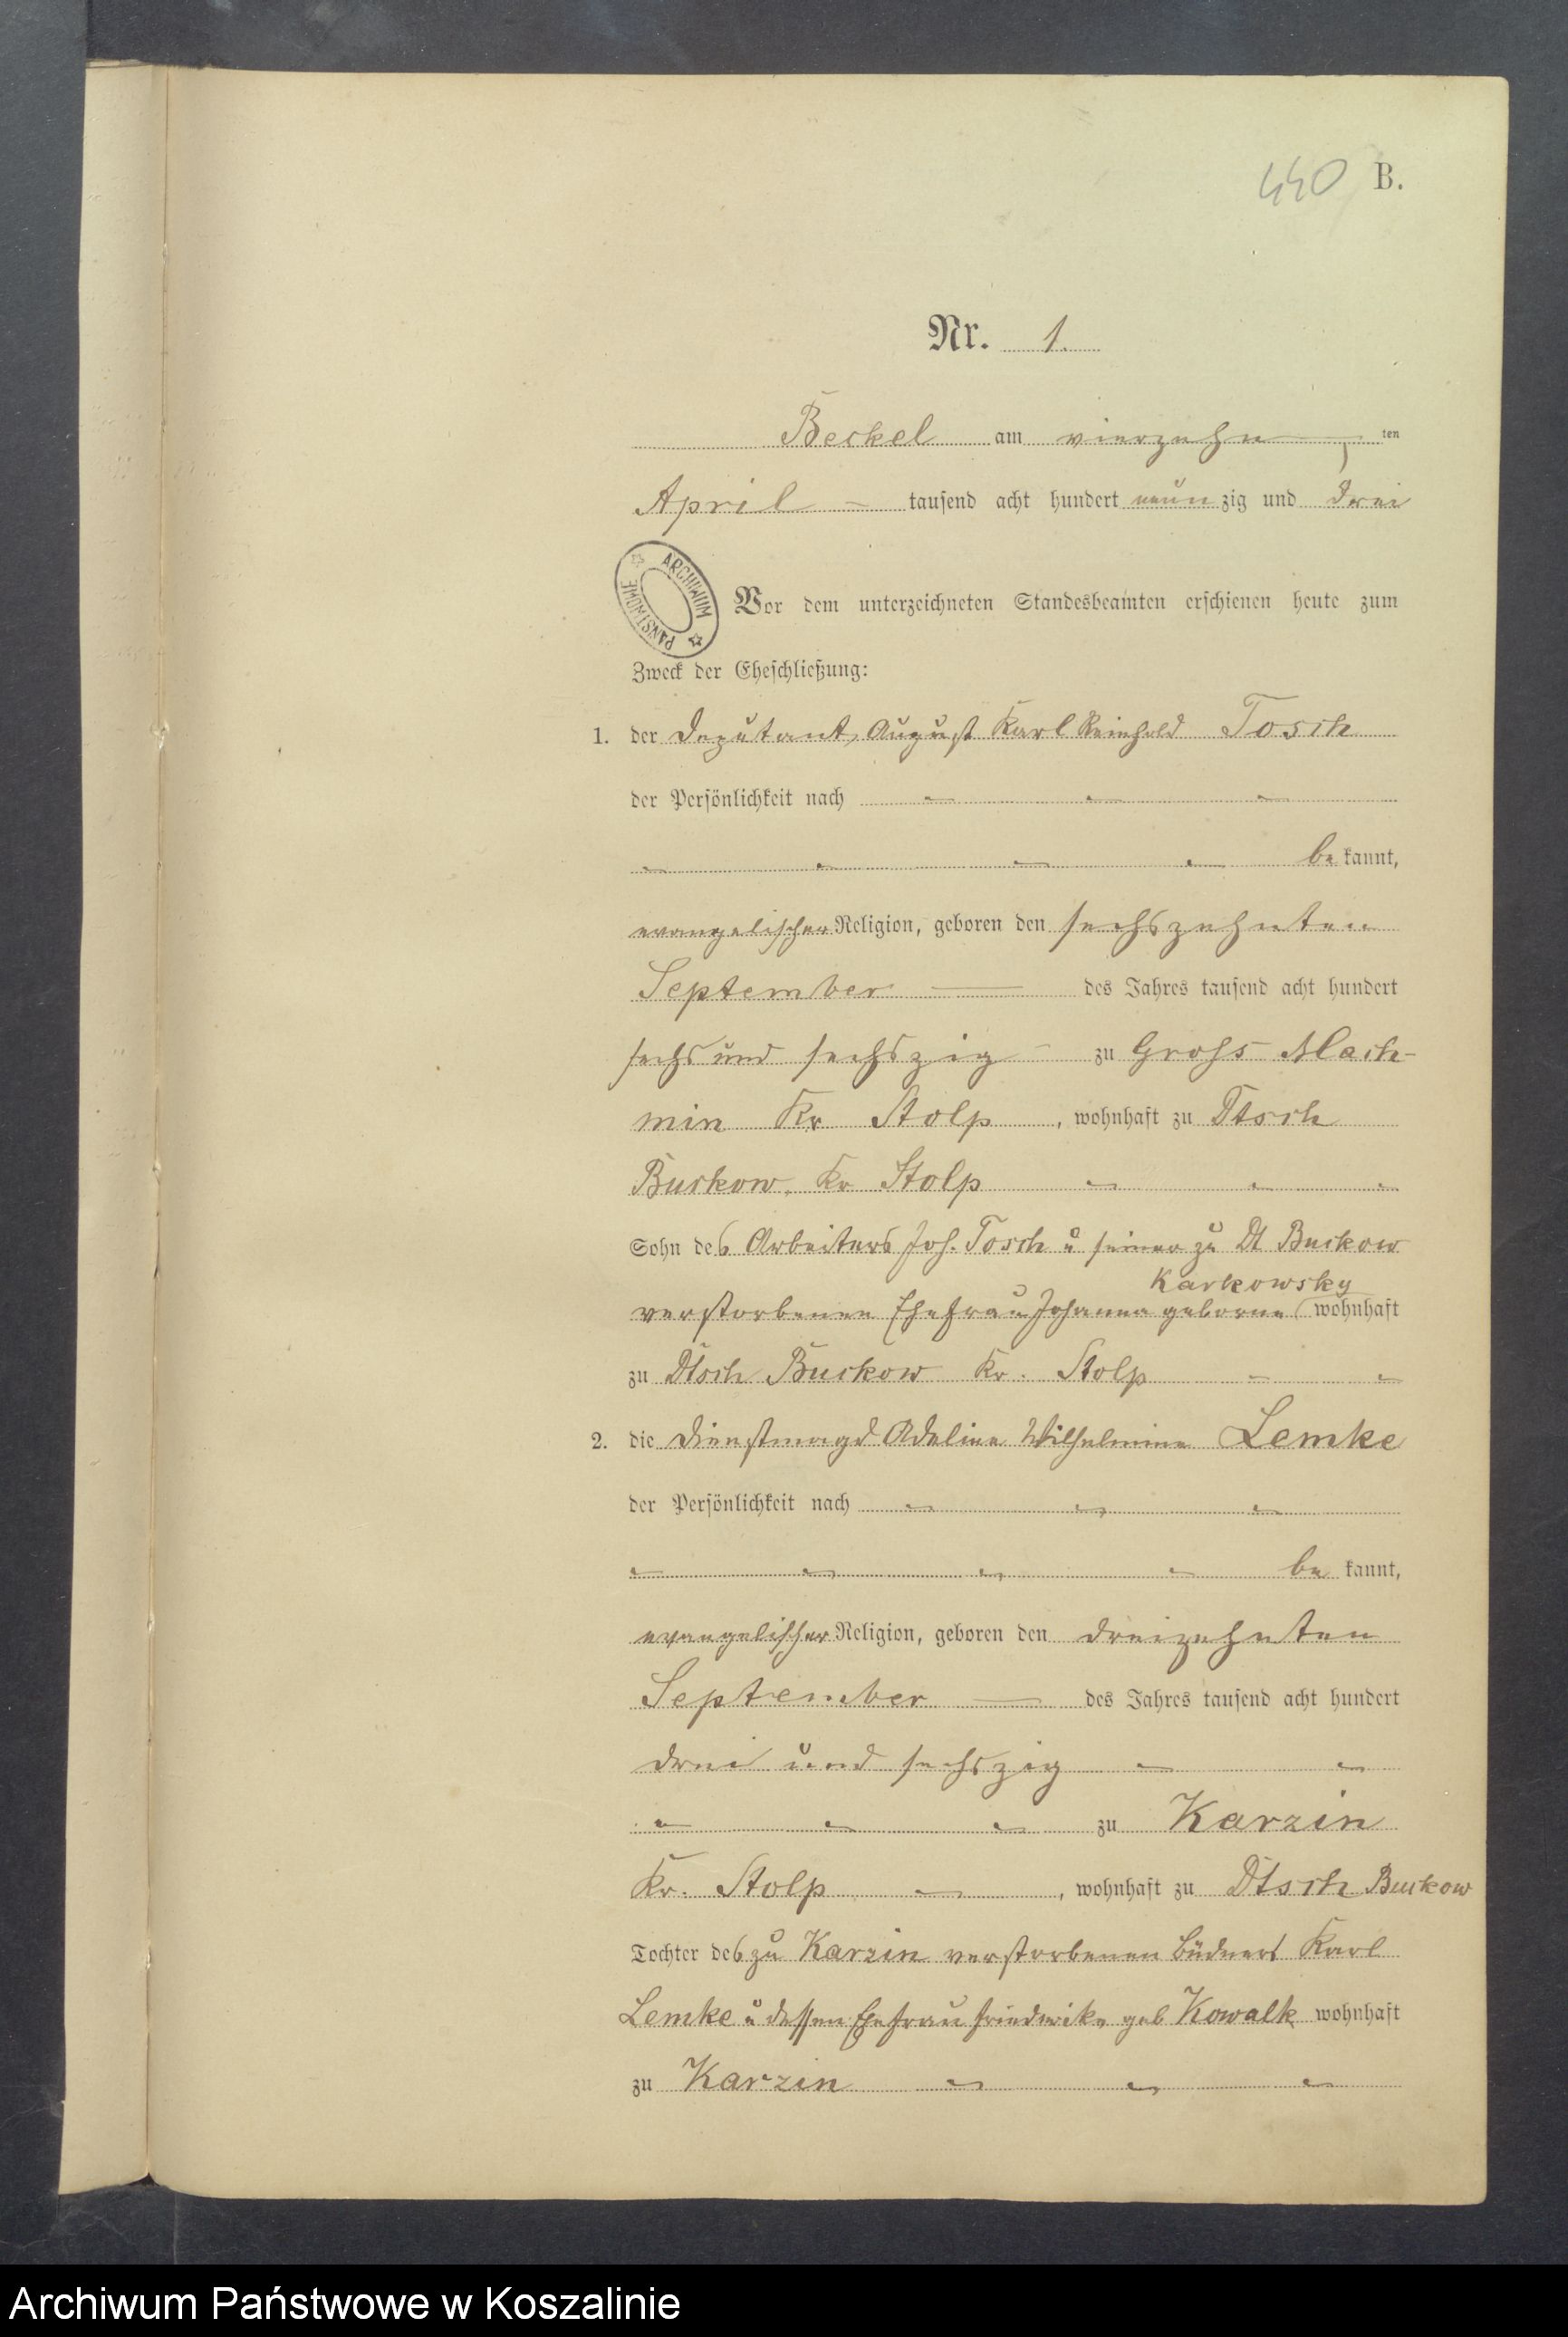 440 B.
Nr. 1.
Beckel am vierzehn ten
April tausend acht hundert neunzig und drei
ARCHIWUM PAŃSTWOWE
Vor dem unterzeichneten Standesbeamten erschienen heute zum
Zweck der Eheschließung:
1. der Deputant, August Karl Reinhold Tosch
der Persönlichkeit nach
be kannt,
evangelischer Religion, geboren den sechszehnten
September des Jahres tausend acht hundert
sechs und sechszig zu Gross Mach-
min Kr Stolp, wohnhaft zu Dtsch
Buckow, Kr Stolp
Sohn des Arbeiters Joh. Tosch u seiner zu Dt Buckow
Karkowsky
verstorbenen Ehefrau Johanna geborne wohnhaft
zu Dtsch Buckow Kr. Stolp
2. die Dienstmagd Adeline Wilhelmine Lemke
der Persönlichkeit nach
be kannt,
evangelischer Religion, geboren den dreizehnten
September des Jahres tausend acht hundert
drei und sechszig
zu Karzin
Kr. Stolp, wohnhaft zu Dtsch Buckow
Tochter des zu Karzin verstorbenen Büdners Karl
Lemke u dessen Ehefrau Friederike geb Kowalk wohnhaft
zu Karzin
Archiwum Państwowe w Koszalinie